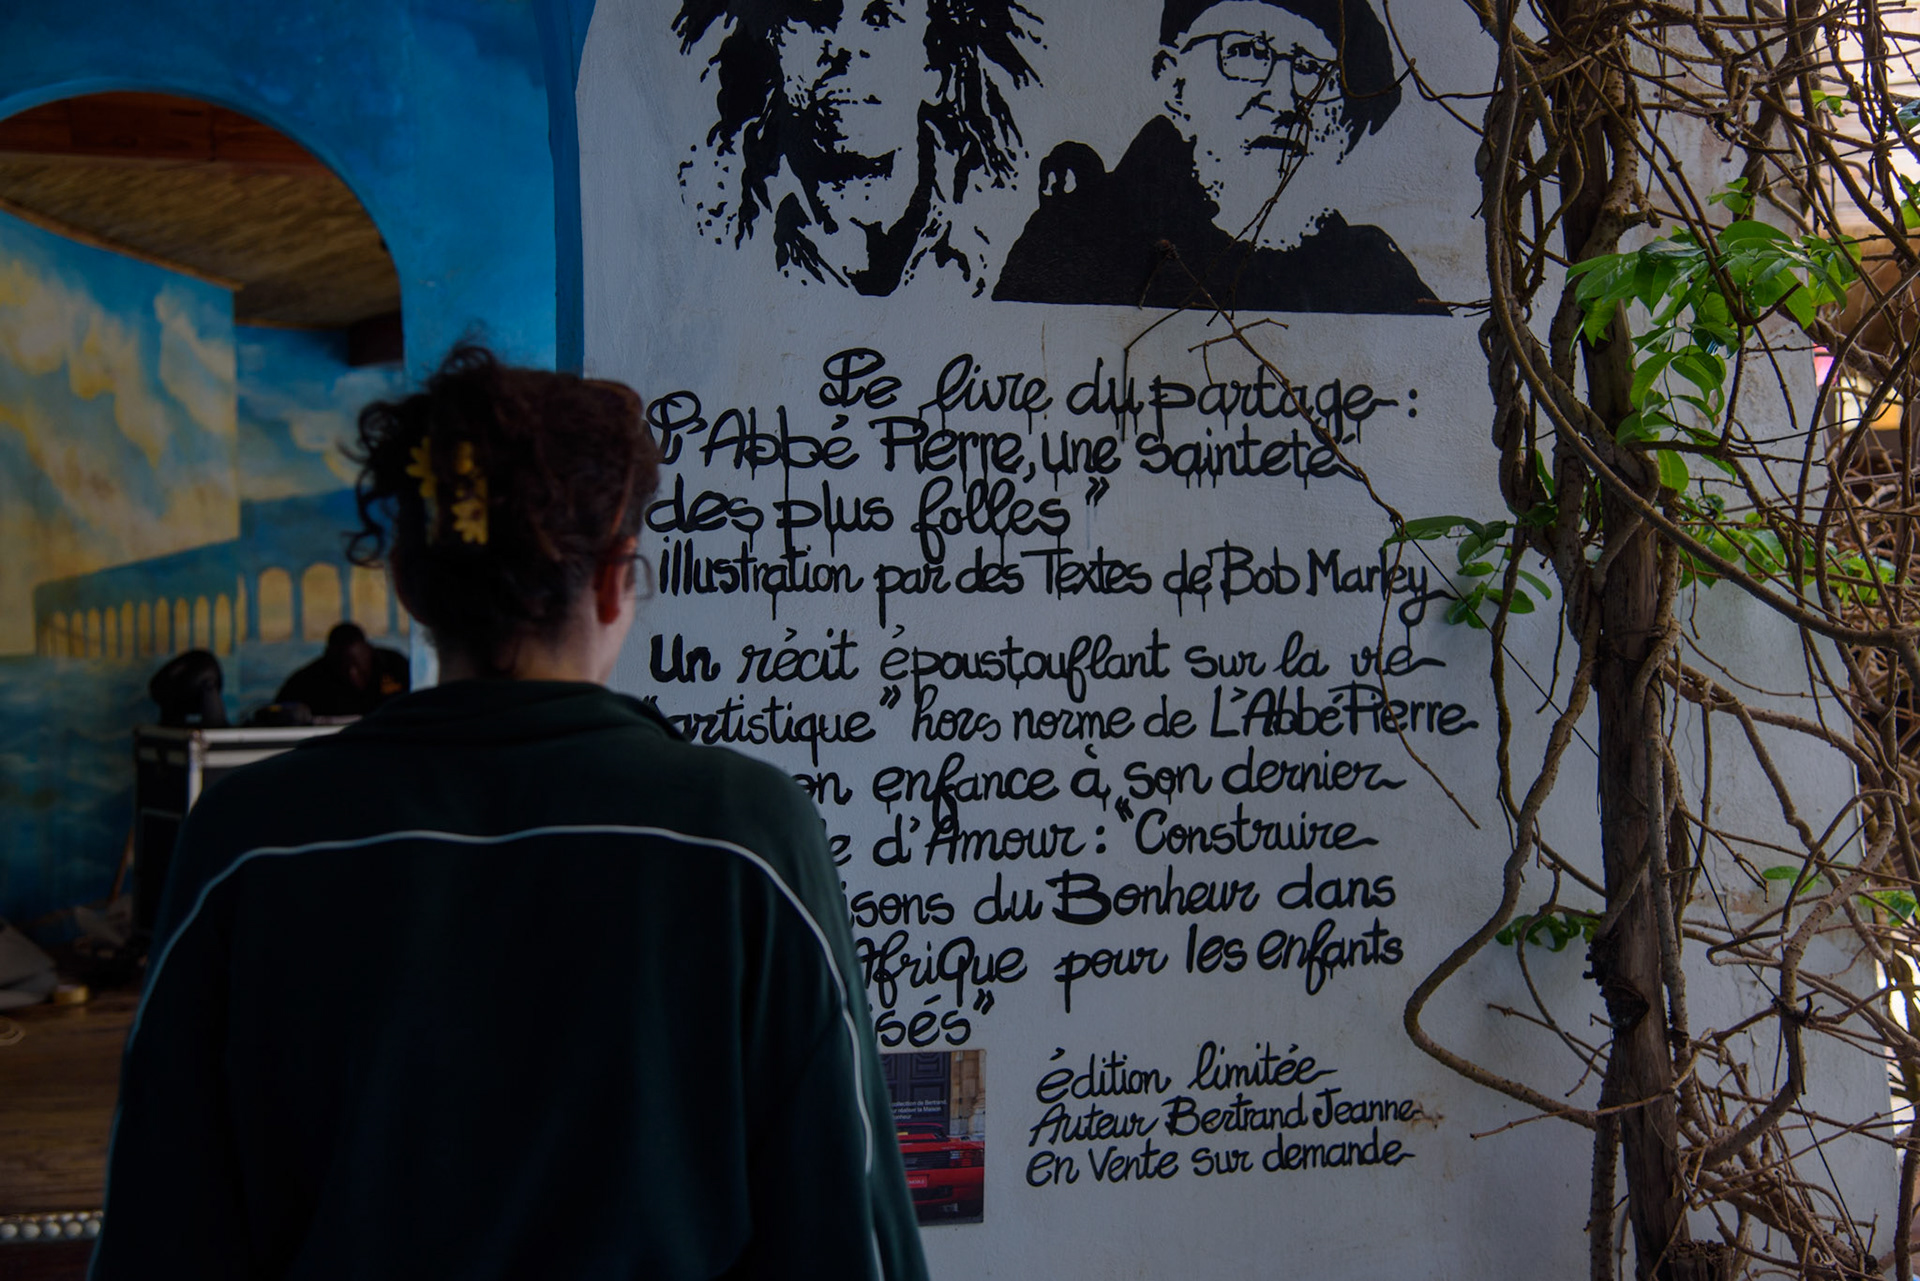 Le livre du partage :
L'Abbé Pierre, une sainteté
des plus folles"
illustration par des Textes de Bob Marley
Un récit époustouflant sur la vie
"artistique" hors norme de L'Abbé Pierre
enfance à son dernier
d'Amour : "Construire
du Bonheur dans
AfriQue pour les enfants
édition limitée
Auteur Bertrand Jeanne
en Vente sur demande